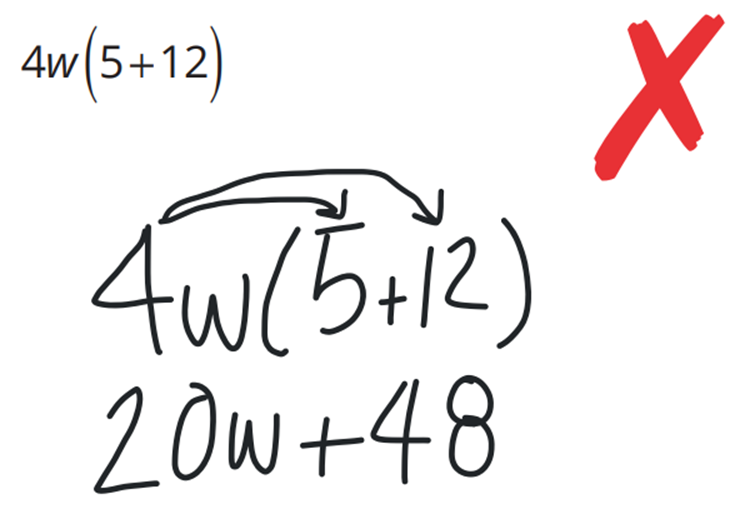 4w(5+12)
4w(5+12)
20w+48